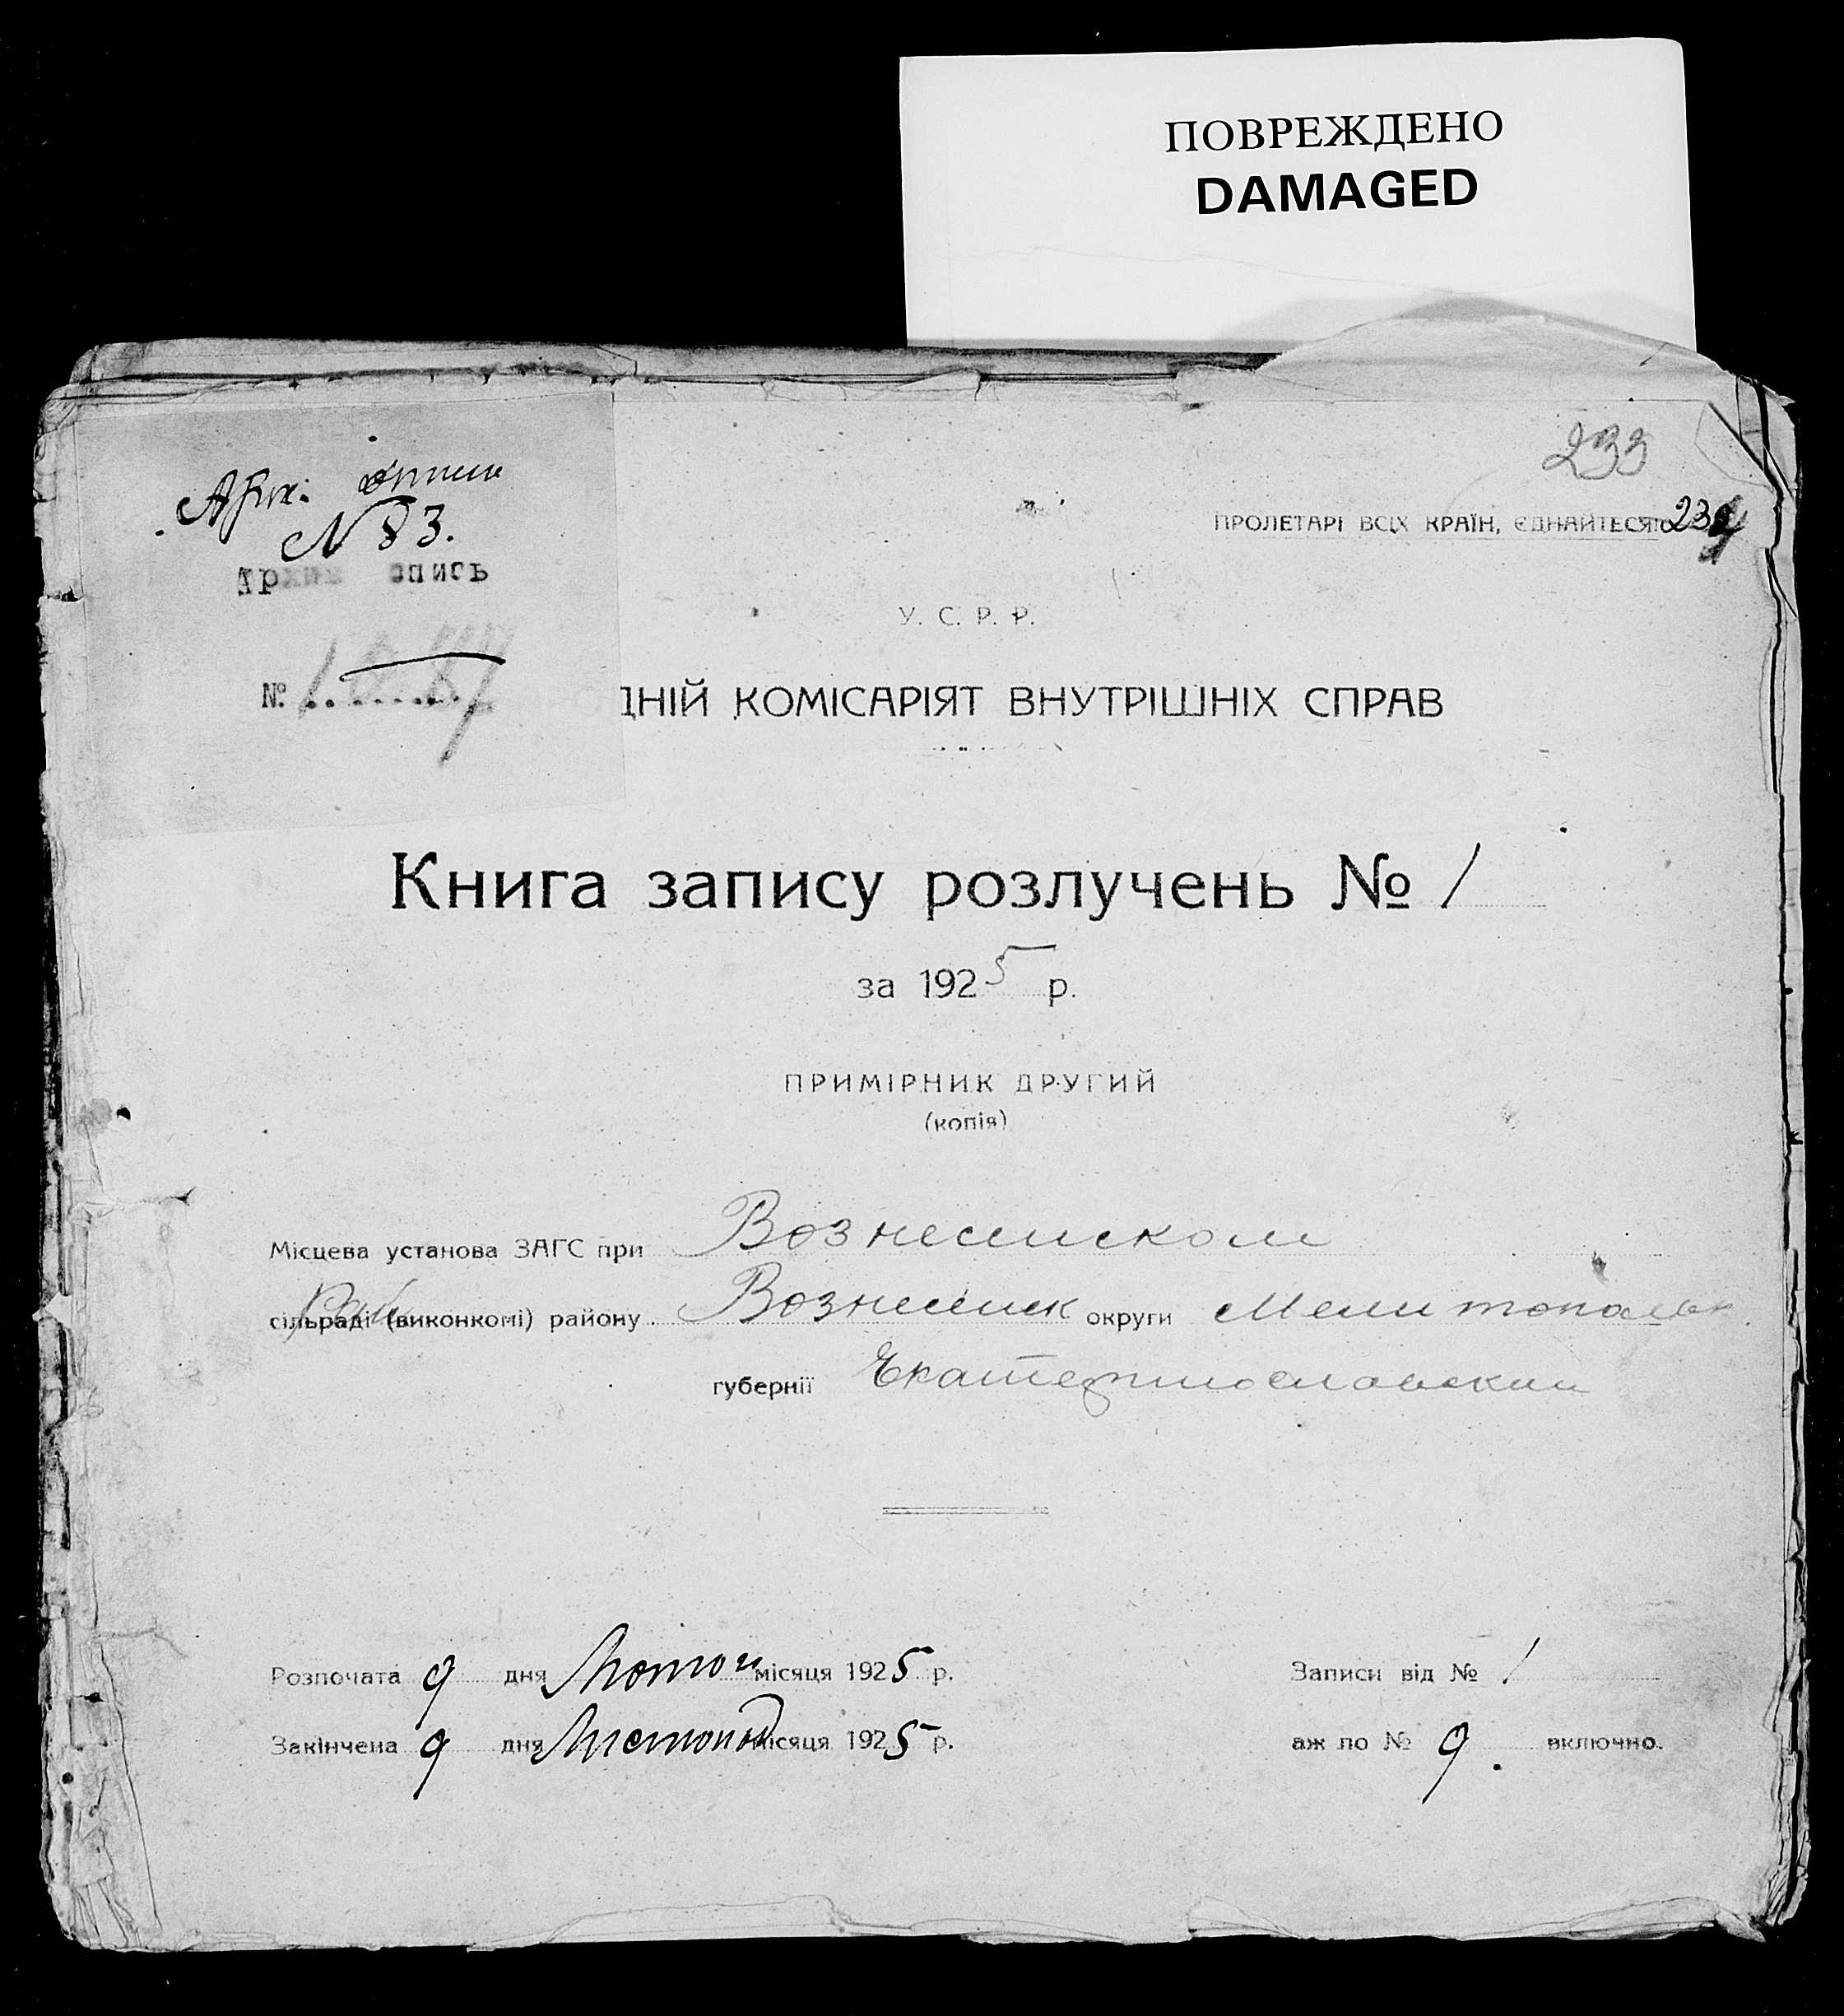 ПОВРЕЖДЕНО
DAMAGED
233
Арх. опись
№ 83.
ПРОЛЕТАРІ ВСІХ КРАЇН, ЄДНАЙТЕСЯ! 234
Архив опись
У. С. Р. Р.
№
ДНІЙ КОМІСАРІЯТ ВНУТРІШНІХ СПРАВ
Книга запису розлучень № 1
за 1925 р.
ПРИМІРНИК ДРУГИЙ
(копія)
Місцева установа ЗАГС при Вознесенском
Рай
сільраді (виконкомі) району Вознесенск округи Мелитопольк.
губернії Екатеринославский
Розпочата 9 дня Лютого місяця 1925 р. Записи від № 1
Закінчена 9 дня Листопад місяця 1925 р. аж по № 9. включно.